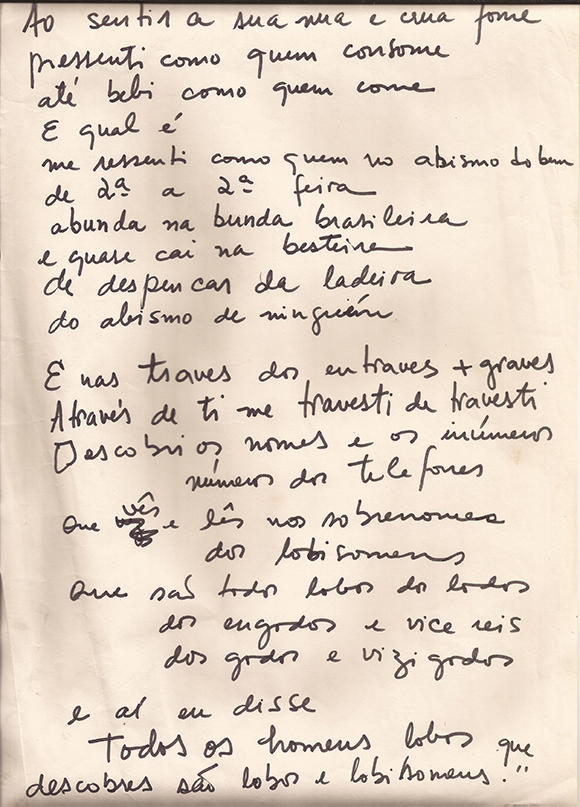 Ao sentir a sua nua e crua fome
pressenti como quem consome
até bebi como quem come
E qual é
me ressenti como quem no abismo do bem
de 2ª a 2ª feira
abunda na bunda brasileira
e quase cai na besteira
de despencar da ladeira
do abismo de ninguém
E nas traves dos entraves + graves
Através de ti me travesti de travesti
Descobri os nomes e os inúmeros
números dos telefones
que vês e lês nos sobrenomes
dos lobisomens
que são todos lobos do lodos
dos engodos e vice reis
dos godos e vizigodos
e aí eu disse
Todos os homens lobos que
descobres são lobos e lobisomens."